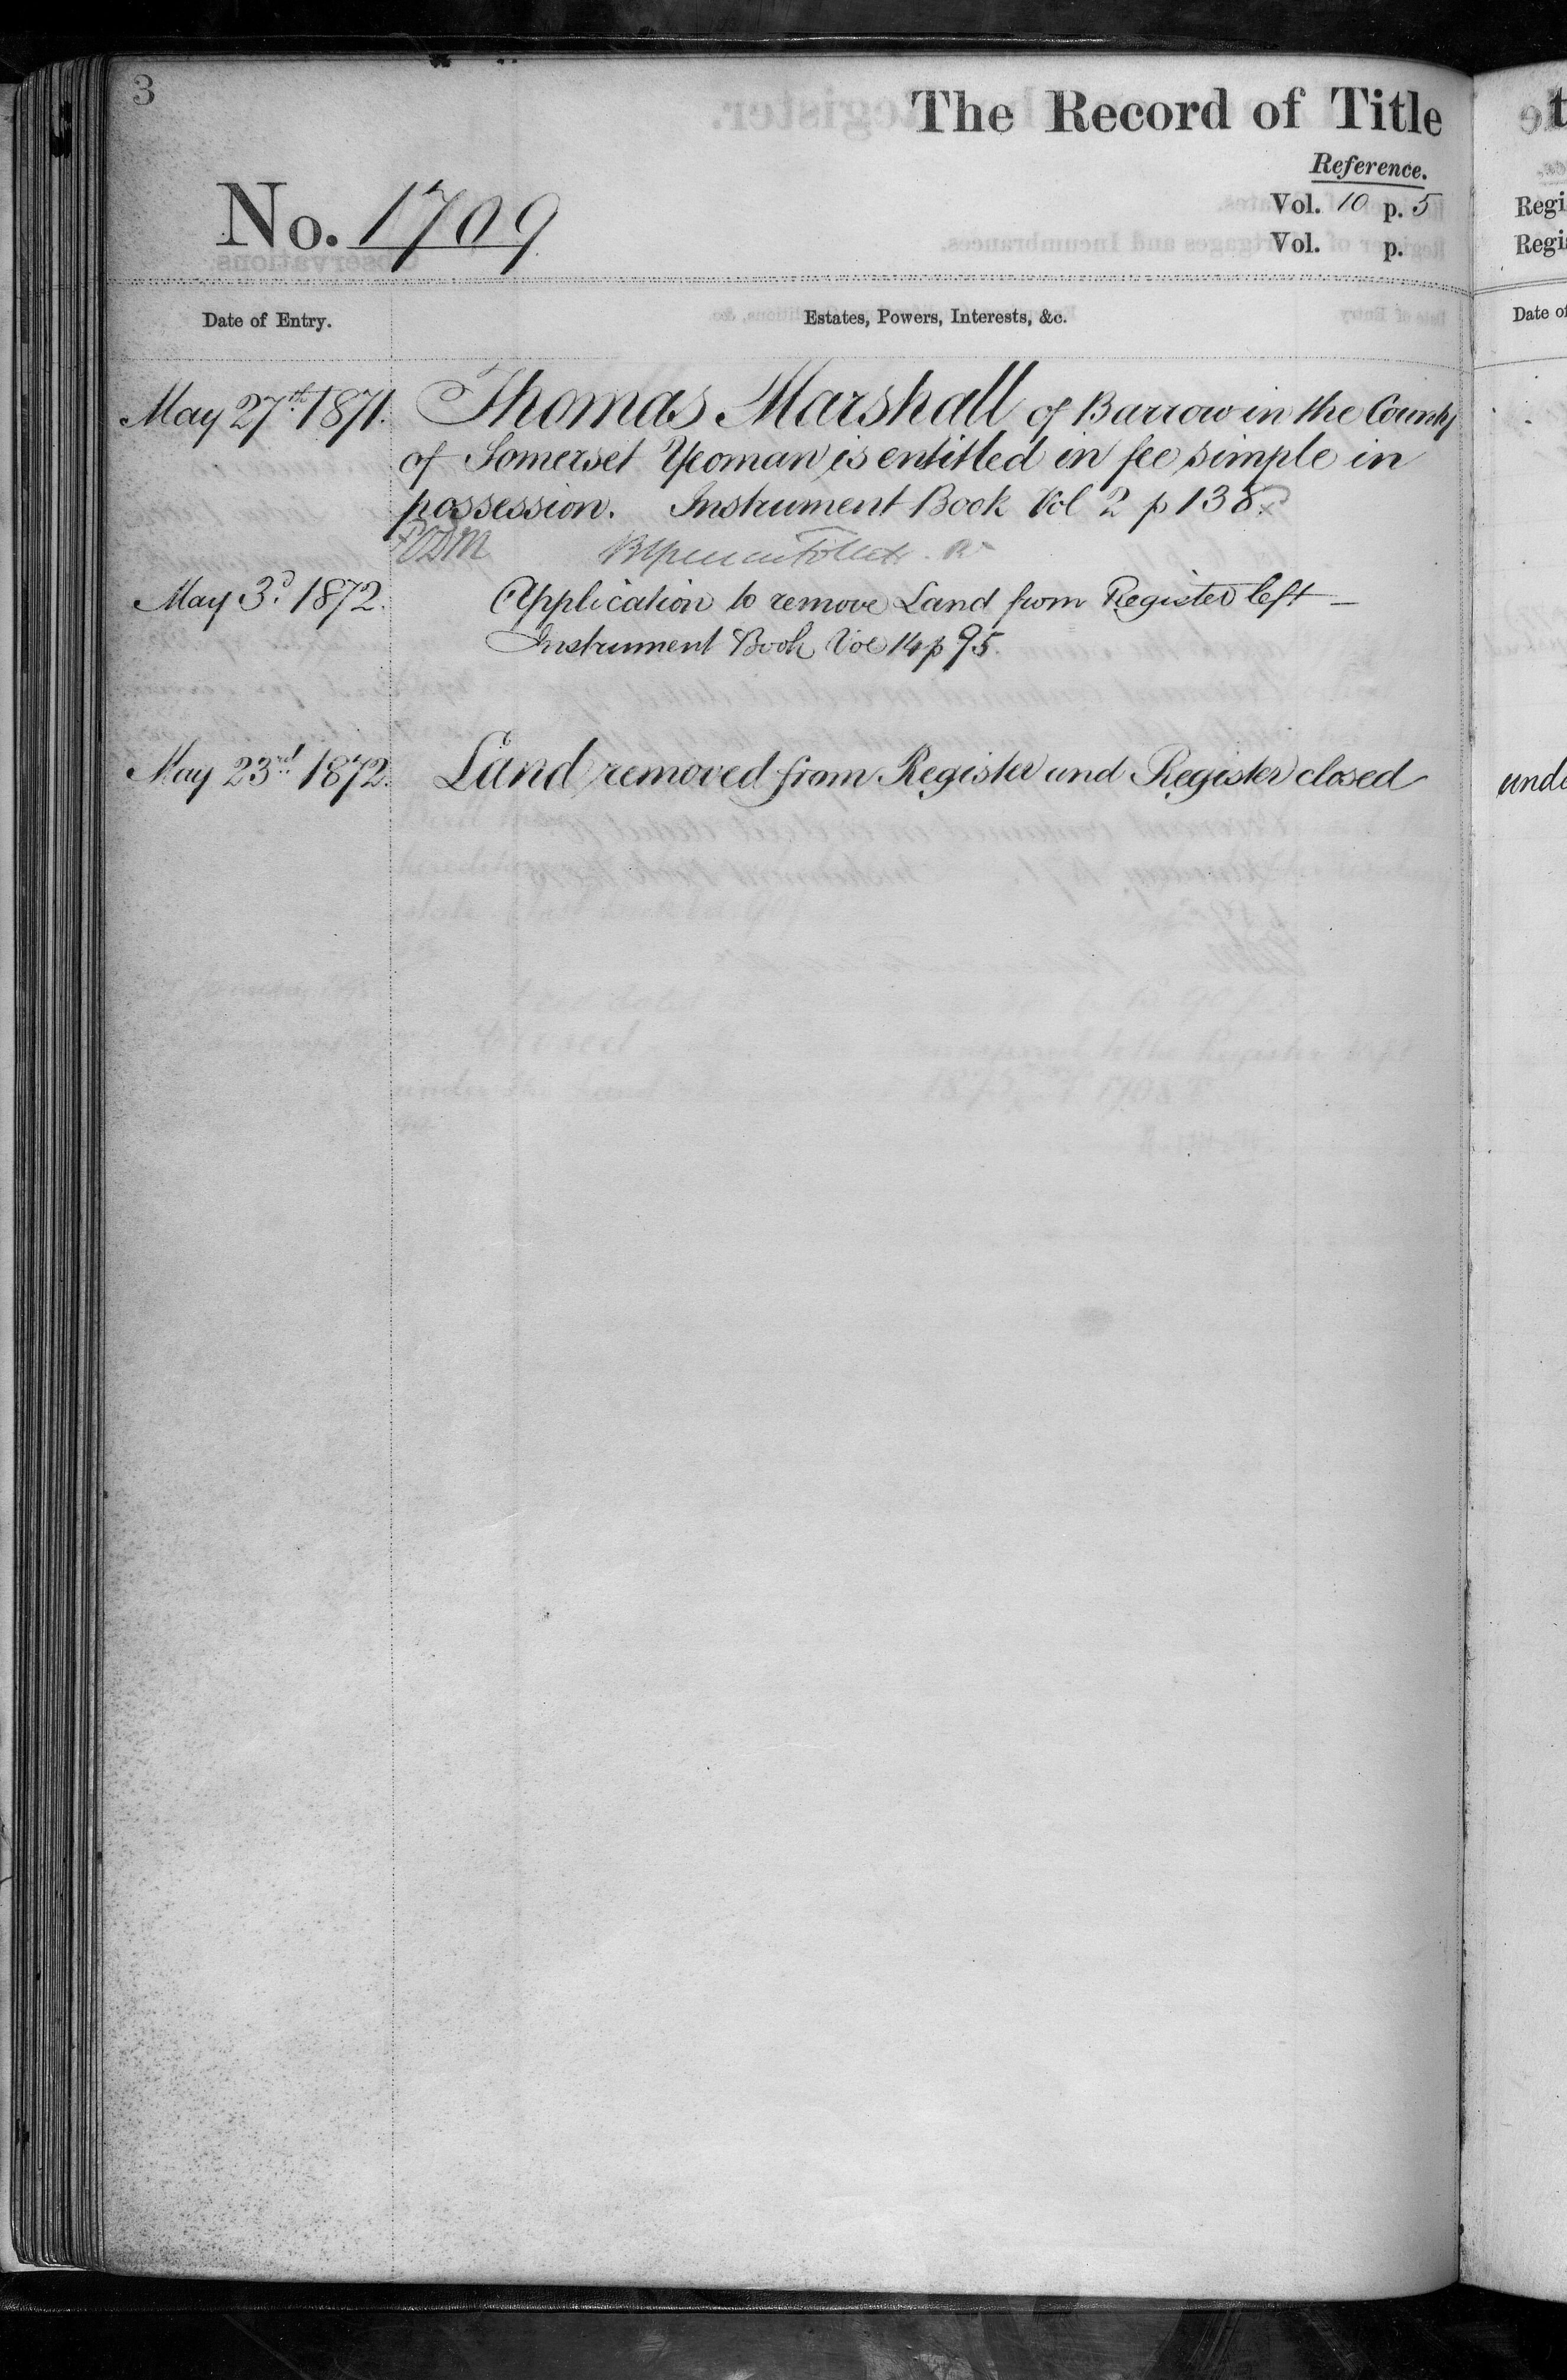 3
The Record of Title
Reference.
No. 1709
Vol. 10 p. 5
Vol. p.
Date of Entry.
Estates, Powers, Interests, &c.
May 27th 1871. Thomas Marshall of Barrow in the County
of Somerset Yeoman is entitled in fee simple in
possession. Instrument Book Vol 2 p 138
May 3d 1872. Application to remove Land from Register left —
Instrument Book Vol 14 p 95.
May 23rd 1872. Land removed from Register and Register closed
Regi
Regi
Date of
unde